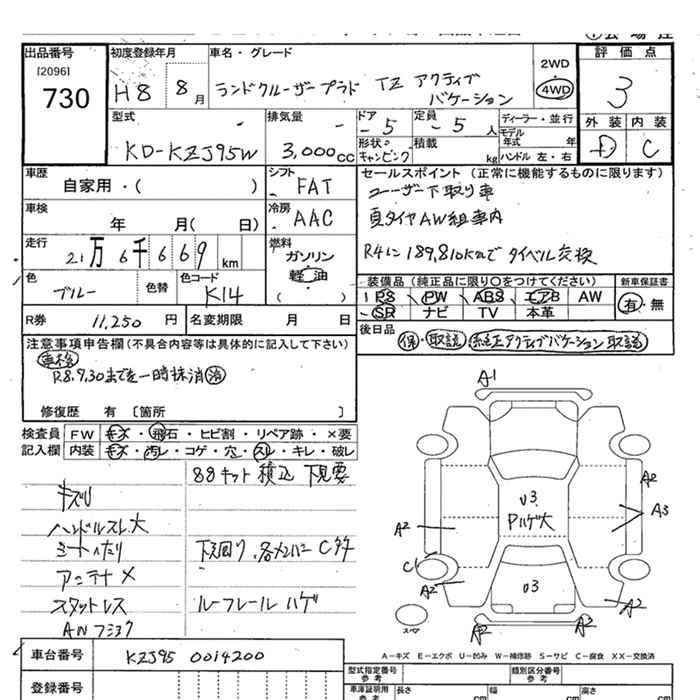 出品番号 初度登録年月 車名・グレード 評価点
[2096]
730 H8 8月 ランドクルーザープラド TZ アクティブ 2WD 3
バケーション 4WD
型式 排気量 ドア 定員 ディーラー・並行 外装 内装
KD-KZJ95W 3,000cc 5 5人 モデル年式 年 D C
形状 キャンピング 積載 kg ハンドル 左・右
車歴 シフト セールスポイント (正常に機能するものに限ります)
自家用・( ) FAT ユーザー下取り車
車検 冷房 夏タイヤAW組車内
年 月( 日) AAC
走行 燃料 R4に189,810kmでタイベル交換
21万6千669km ガソリン
軽油
( )
色 色替 色コード 装備品 (純正品に限り○をつけてください) 新車保証書
ブルー K14 PS PW ABS エアB AW 有・無
SR ナビ TV 本革
R券 11,250円 名変期限 月 日 後日品
保・取説 純正アクティブバケーション取説
注意事項申告欄(不具合内容等は具体的に記入して下さい)
車検
R8.9.30までを一時抹消済
修復歴 有 [箇所 ]
検査員 FW キズ・飛石・ヒビ割・リペア跡・×要
記入欄 内装 キズ・汚レ・コゲ・穴・スレ・キレ・破レ
88キット積込 下見要
キズU
ハンドルスレ大
シートへたり 下廻り、各メンバーCタタ
アンテナ×
スタットレス ルーフレールハゲ
A1
U3
Pハゲ大
A2
A3
A2
C
A2
U3
A2
A2
A2
スペア
A-キズ E-エクボ U-凹み W-補修跡 S-サビ C-腐食 XX-交換済
車台番号 KZJ95 0014200 型式指定番号 参考 類別区分番号 参考
登録番号 車庫証明用 参考 長さ cm 幅 cm 高さ cm